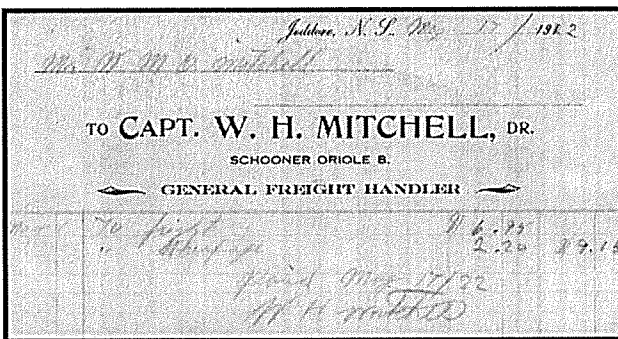 Jeddore, N. S. May 17 / 1922
Mr W M O Mitchell
TO CAPT. W. H. MITCHELL, DR.
SCHOONER ORIOLE B.
GENERAL FREIGHT HANDLER
To freight $ 6.95
" 2.20 $ 9.15
Paid May 17/22
W H Mitchell